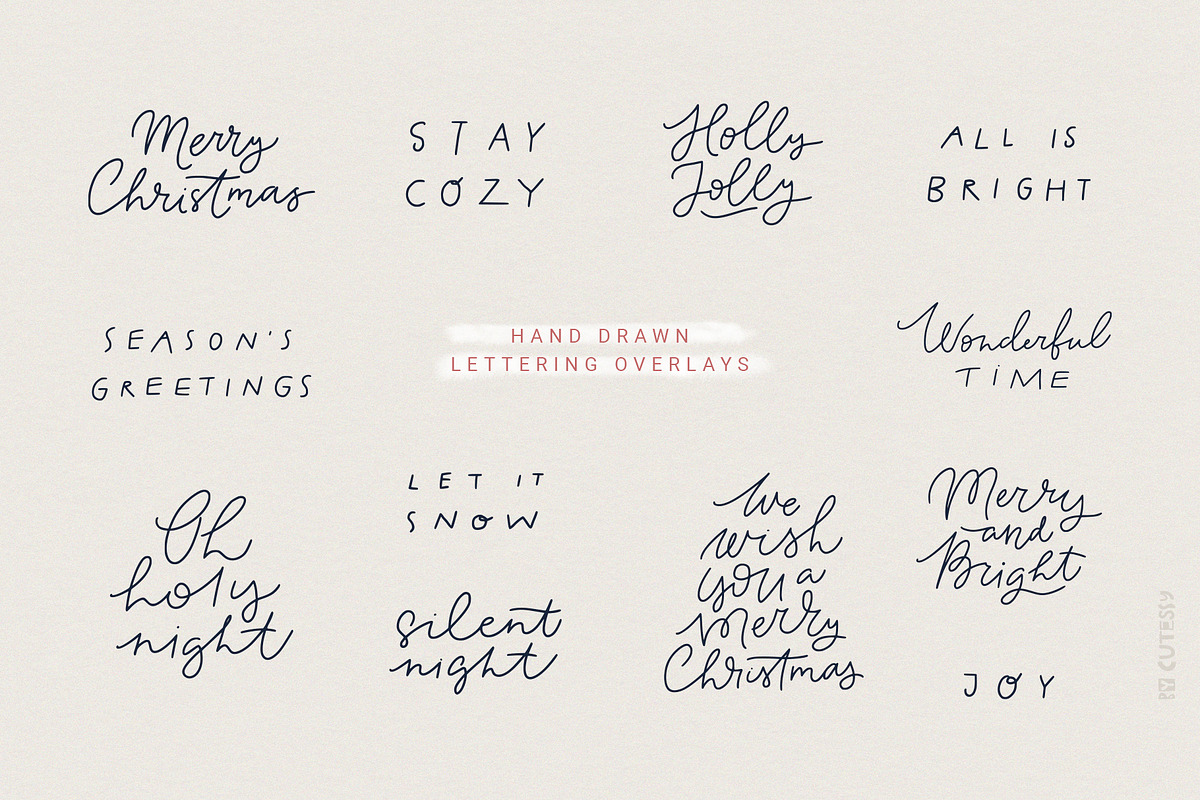 Merry
Christmas
STAY
COZY
Holly
Jolly
ALL IS
BRIGHT
SEASON'S
GREETINGS
HAND DRAWN
LETTERING OVERLAYS
Wonderful
TiME
Oh
holy
night
LET IT
SNOW
silent
night
We
wish
you a
Merry
Christmas
Merry
and
Bright
JOY
BY CUTESSY